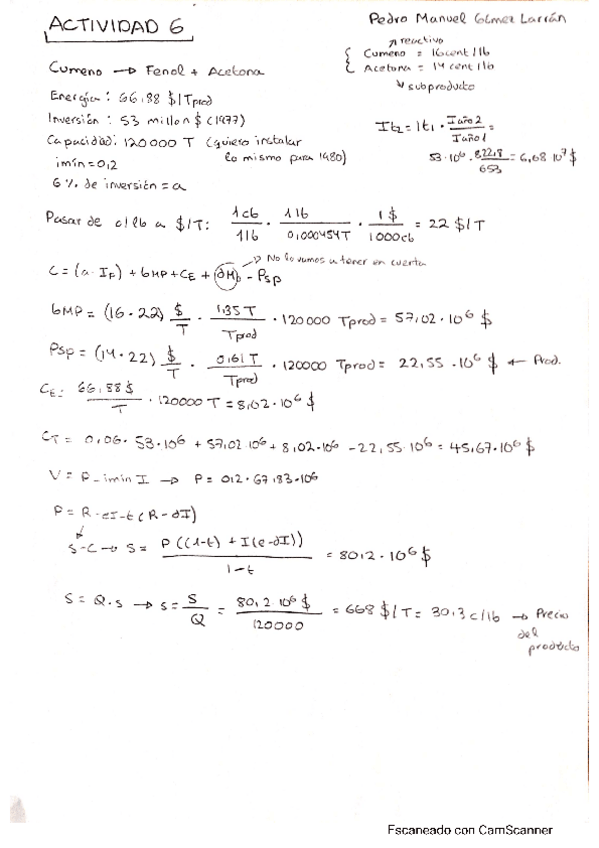 ACTIVIDAD 6
Pedro Manuel Gómez Larrán
Cumeno → Fenol + Acetona
↗ reactivo
Cumeno = 16 cent/lb
Acetona = 14 cent/lb
↘ subproducto
Energía: 66,88 $/Tprod
Inversión: 53 millon $ (1977)
Capacidad: 120000 T (quiero instalar
lo mismo para 1980)
imín = 0,2
6% de inversión = a
It2 = It1 · Iaño2 / Iaño1 =
53·10⁶ · 822,8 / 653 = 6,68 10⁷ $
Pasar de c/lb a $/T: 1cb / 1lb · 1 lb / 0,000454T · 1 $ / 1000cb = 22 $/T
→ No lo vamos a tener en cuenta
C = (a · IF) + bMP + CE + dMb - Psp
bMP = (16 · 22) $ / T · 1,35 T / Tprod · 120000 Tprod = 57,02 · 10⁶ $
Psp = (14 · 22) $ / T · 0,61 T / Tprod · 120000 Tprod = 22,55 · 10⁶ $ ← Prod.
CE: 66,88 $ / T · 120000 T = 8,02 · 10⁶ $
CT = 0,06 · 53·10⁶ + 57,02·10⁶ + 8,02·10⁶ - 22,55·10⁶ = 45,67·10⁶ $
V = P - imín I → P = 0,2 · 67,83·10⁶
P = R - eI - t (R - dI)
S-C → S = P ((1-t) + I(e-dI)) / 1-t = 80,2 · 10⁶ $
S = Q.s → s = S / Q = 80,2 10⁶ $ / 120000 = 668 $/T = 30,3 c/lb → Precio
del
producto
Escaneado con CamScanner